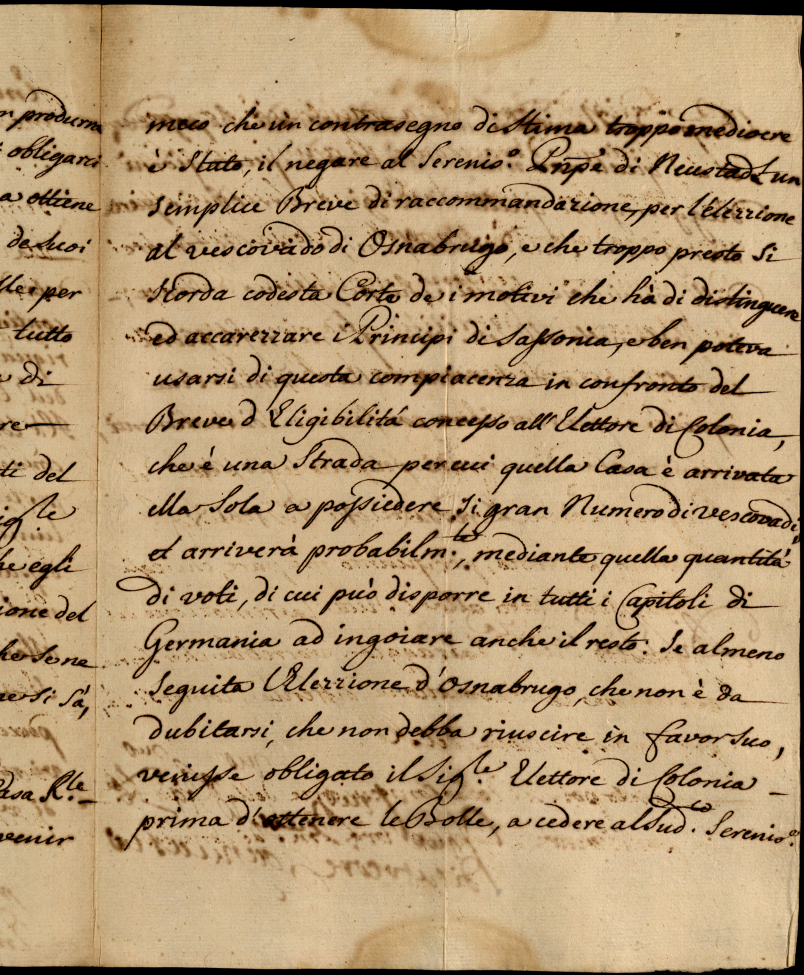 n produrre
obligarci
a ottiene
de suoi
lle per
tutto
di
re
ti del
he egli
ione del
he se ne
e si sá,
Casa R.le
venir
meco che un contrasegno di stima troppo mediocre
è stato, il negare al Sereniss.o Pñpe di Neustadt un
semplice Breve di raccommandazione, per l'élezzione
al vescovádo di Osnabrugo, e che troppo presto si
scorda codesta Corte de i motivi che hà di distinguere
ed accarezzare i Principi di Sassonia, e ben poteva
usarsi di questa compiacenza in confronto del
Breve d'Eligibilitá concesso all'Elettore di Colonia,
che è una Strada per cui quella Casa è arrivata
ella Sola a possiedere si gran Numero di vescovadi,
et arriverà probabilm.te, mediante quella quantitá
di voti, di cui può disporre in tutti i Capitoli di
Germania ad ingoiare anche il resto. Se almeno
seguita l'Elezzione d'Osnabrugo, che non è da
dubitarsi, che non debba riuscire in favor suo,
venisse obligato il Sig.le Elettore di Colonia
prima d'ottenere le Bolle, a cedere al Sud.to Sereniss.o